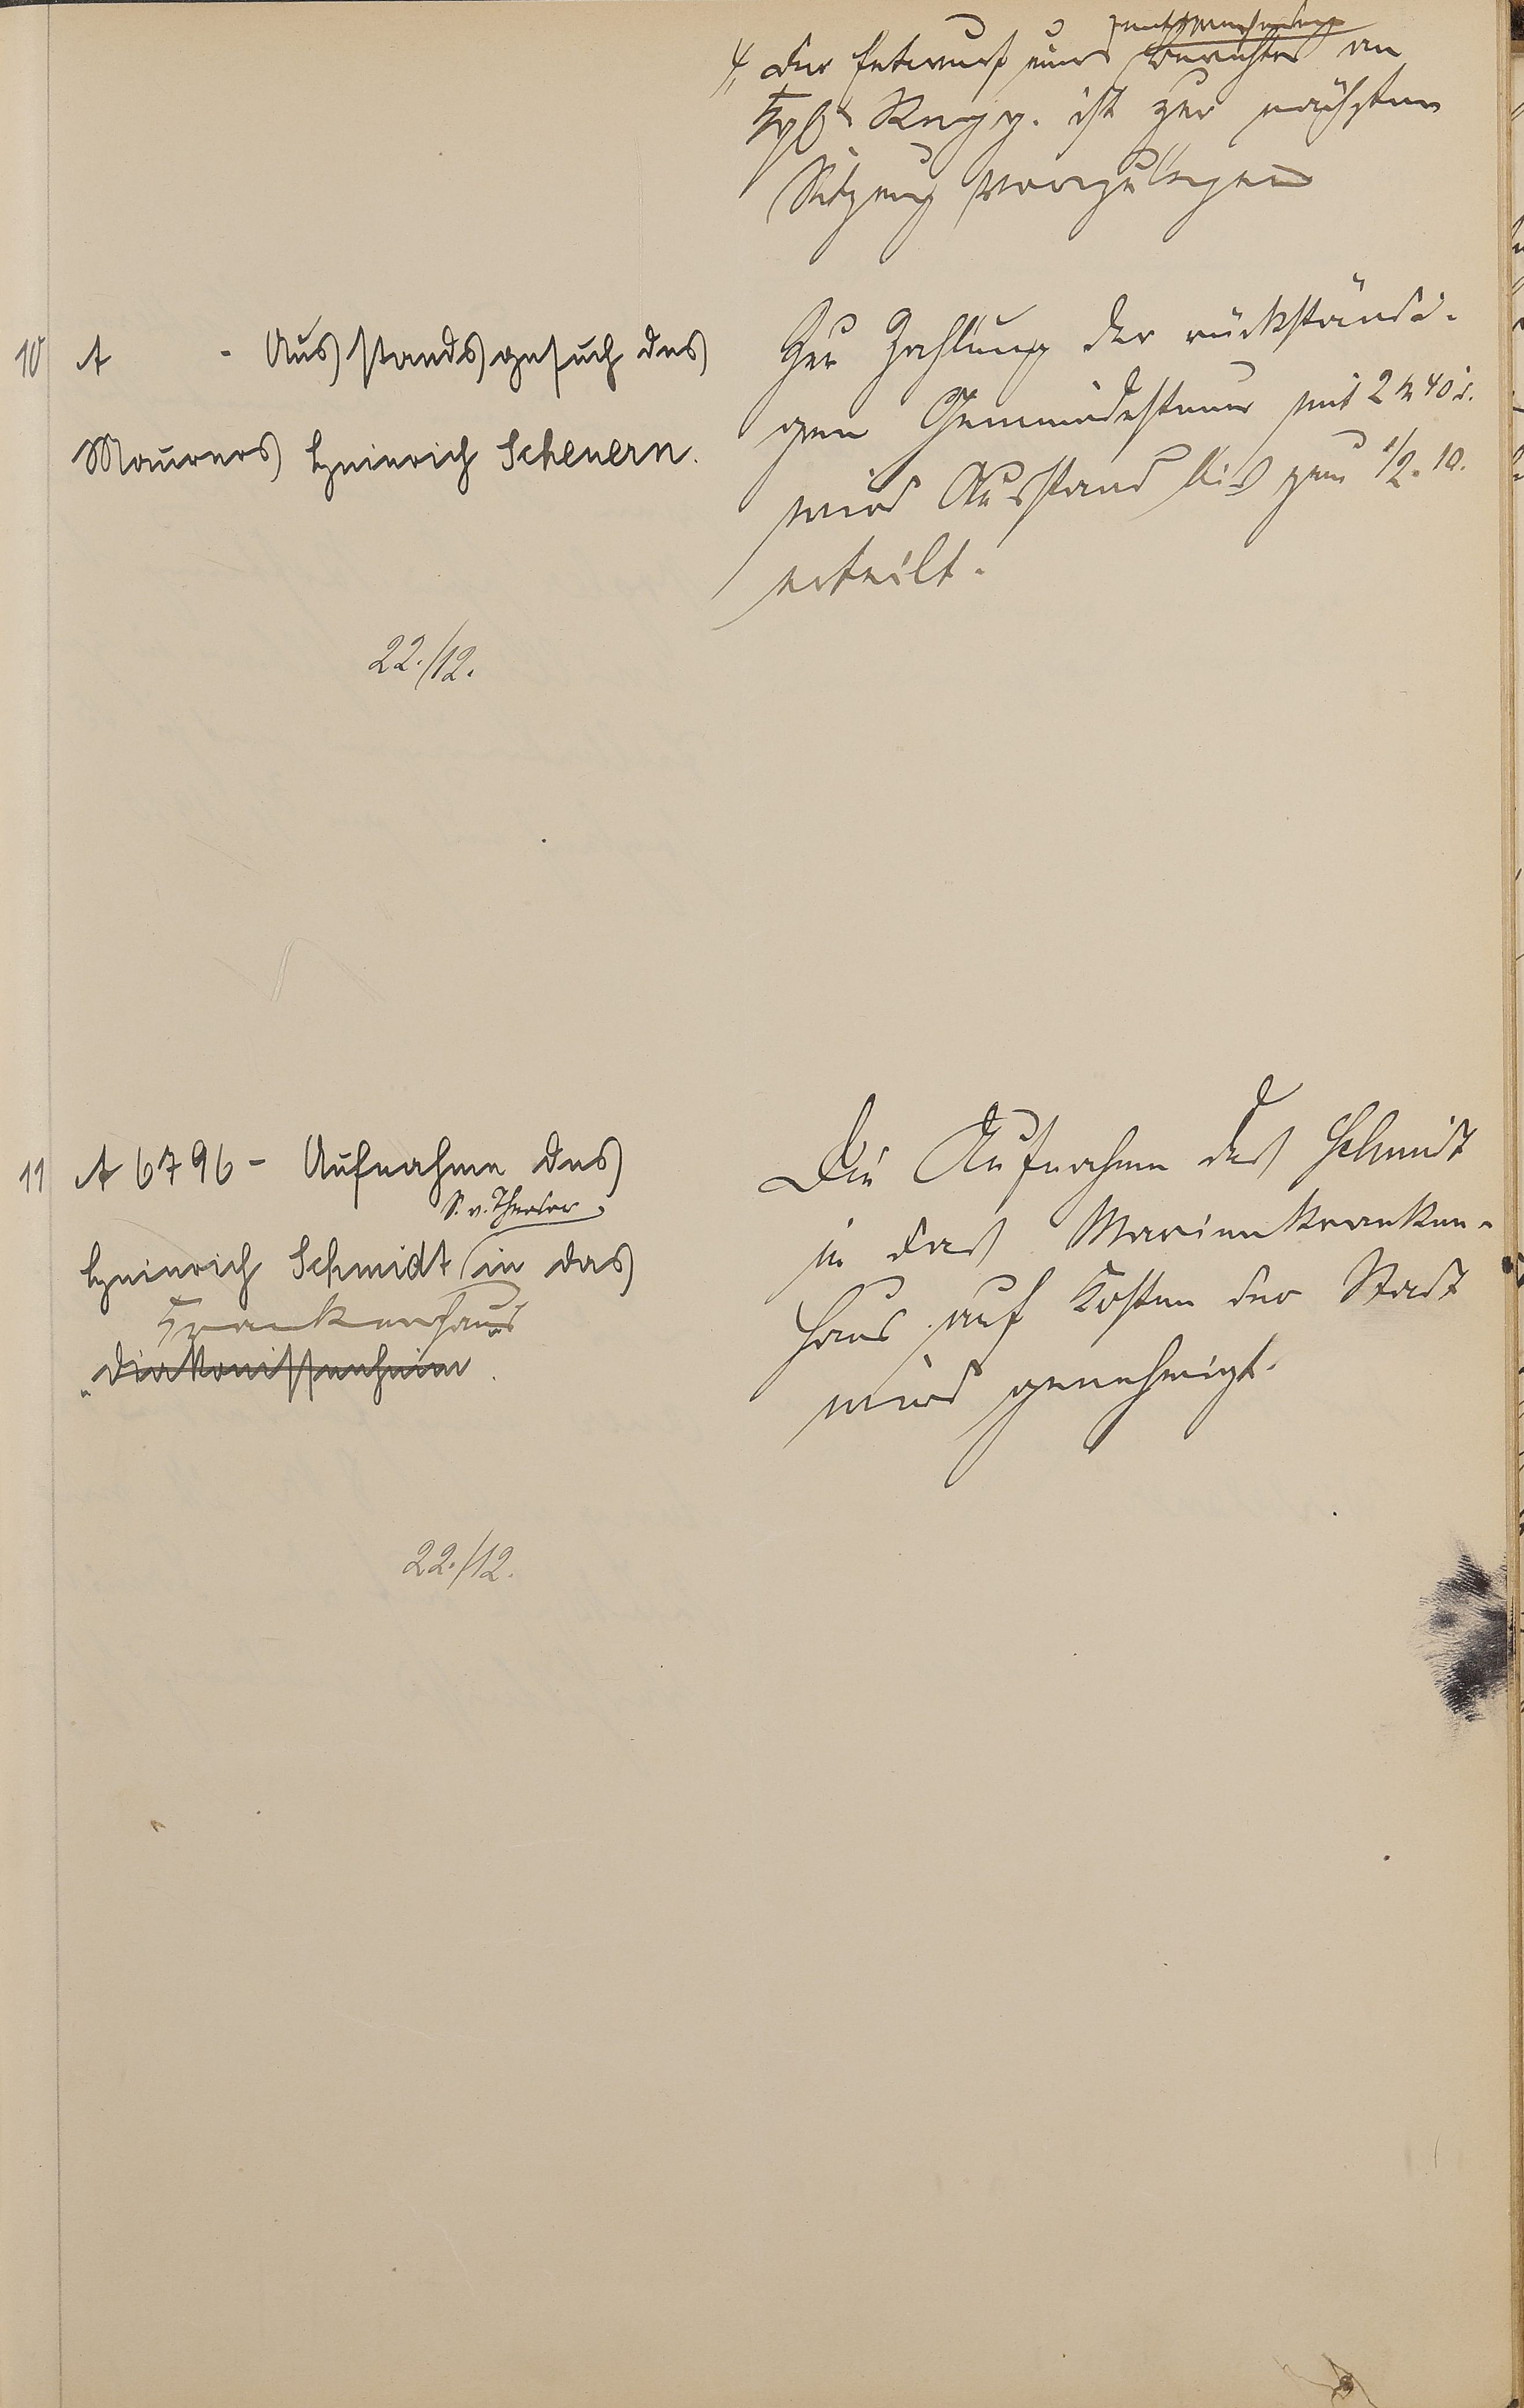 4, Der Entwurf eines Berichtes an
Kgl. Regg. ist zur nächsten
Sitzung vorzulegen
10 A - Ausstandsgesuch des
Maurers Heinrich Scheuern.
22./12.
Zur Zahlung der rückständi-
gen Gemeindesteuer mit 2 M 40 δ.
wird Ausstand bis zum 1/2. 10.
erteilt.
11 A 6796 - Aufnahme des
S. v. Theodor
Heinrich Schmidt in das
Krankenhaus
Diakonissenheim.
22./12.
Die Aufnahme des Schmidt
in das Marienkranken-
haus auf Kosten der Stadt
wird genehmigt.